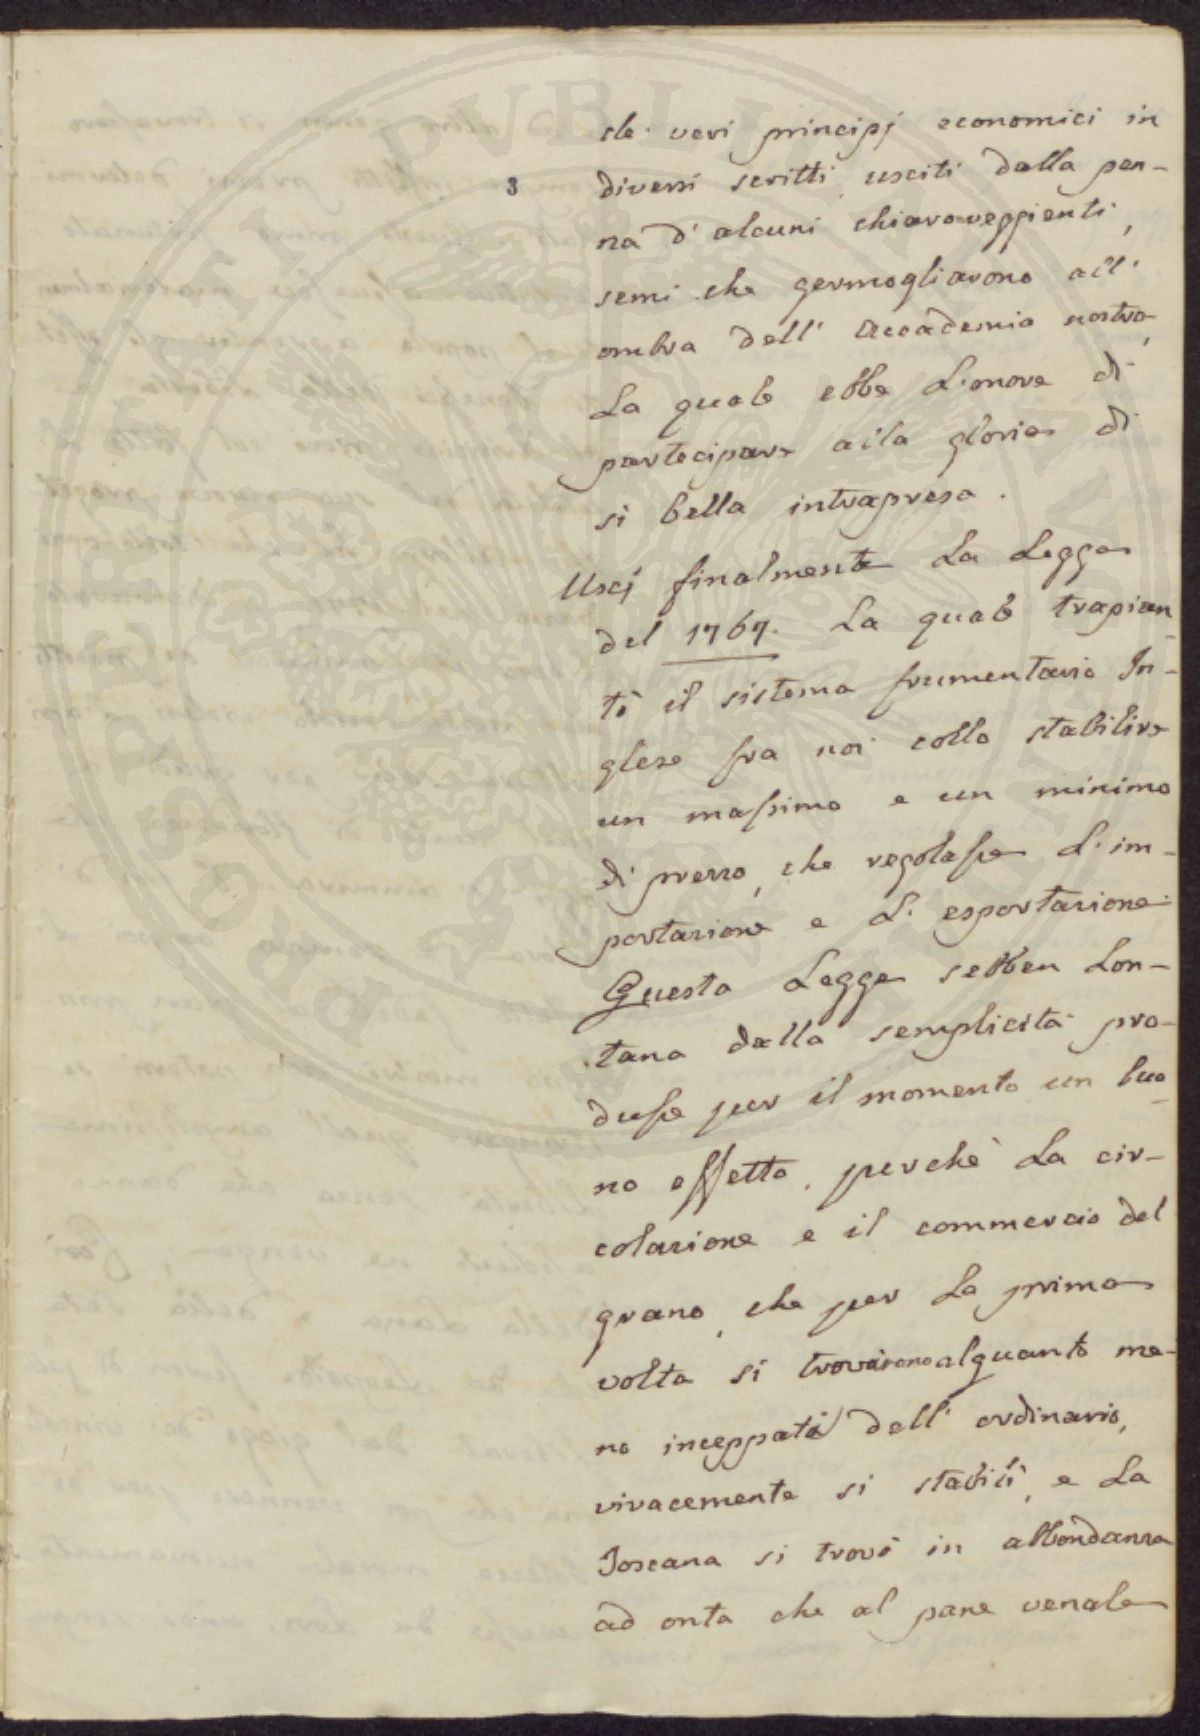 de' veri principj economici in
3
diversi scritti usciti dalla pen-
na d'alcuni chiaroveggienti,
semi che germogliarono all'
ombra dell'Accademia nostra,
La quale ebbe L'onore di
partecipare alla gloria di
sì bella intrapresa.
Uscj finalmente La Legge
del 1767. La quale trapian-
tò il sistema frumentario In-
glese fra noi collo stabilire
un massimo e un minimo
di prezzo, che regolasse L'im-
portazione e L'esportazione.
Questa Legge sebben Lon-
tana dalla semplicità pro-
dusse per il momento un buo-
no effetto, perchè La cir-
colazione e il commercio del
grano, che per La prima
volta si trovarono alquanto me-
no inceppati dell'ordinario,
vivacemente si stabilì, e La
Toscana si trovò in abbondanza
ad onta che al pane venale